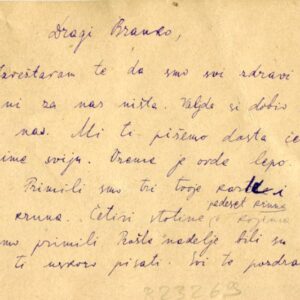 Dragi Branko,
Izveštavam te da smo svi zdravi
ni za nas ništa. Valjda si dobio
nas. Mi ti pišemo dosta če
ime sviju. Vreme je ovde lepo.
Primili smo tri tvoje karte i
pedeset kruna
kruna. Četiri stotine je kojima
smo primili Prošle nedelje bili su
ti uskoro pisati. Svi te pozdra
223269